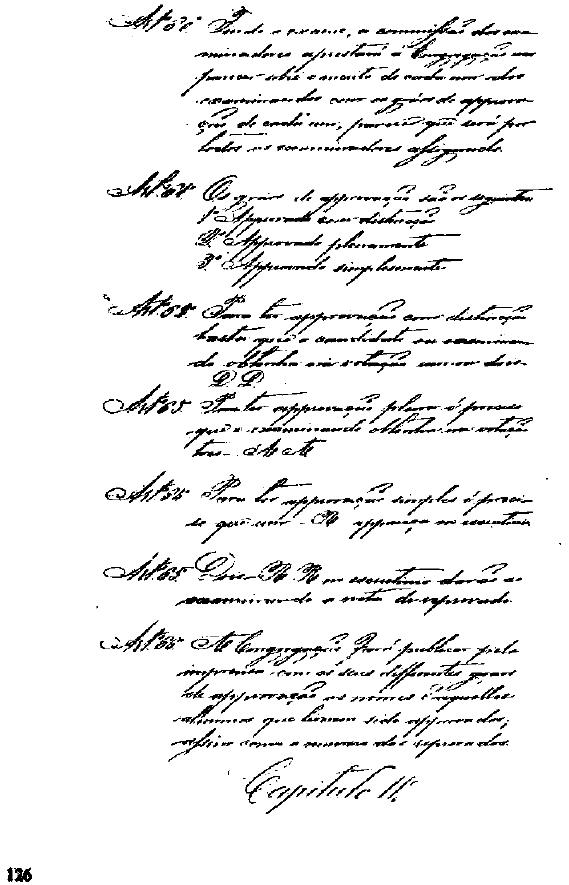 Findo o exame, a commissão dos exa-
minadores apresentará á Congregação um
parecer sobre o merito de cada um dos
examinandos com os gráos de approva-
ção de cada um, parecer que será por
todos os examinadores assignado.
Os gráos de approvação são os seguintes
1º Approvado com distincção
2º Approvado plenamente
3º Approvado simplesmente
Para ter approvação com distincção
basta que o candidato ou examinan-
do obtenha em votação
D. D.
Para ter approvação plena é preciso
que o examinando obtenha na votação
tres M M
Para ter approvação simples é preci-
so que um R appareça no escrutinio
Dois R R no escrutinio darão ao
examinando a nota de reprovado.
A Congregação fará publicar pela
imprensa com os seus differentes gráos
de approvação os nomes d'aquelles
alumnos que tiverem sido approvados,
assim como o numero dos reprovados.
Capitulo II.
126